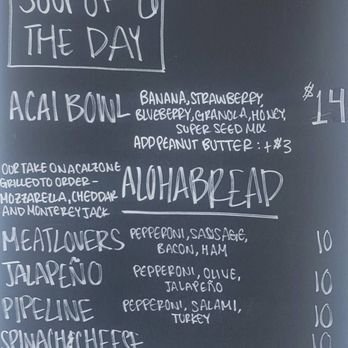 SOUP OF
THE DAY
ACAI BOWL
BANANA, STRAWBERRY,
BLUEBERRY, GRANOLA, HONEY,
SUPER SEED MIX
ADD PEANUT BUTTER : +$3
$14
OUR TAKE ON A CALZONE
GRILLED TO ORDER -
MOZZARELLA, CHEDDAR
AND MONTEREY JACK
ALOHABREAD
MEATLOVERS PEPPERONI, SAUSAGE, 10
BACON, HAM
JALAPEÑO PEPPERONI, OLIVE, 10
JALAPEÑO
PIPELINE PEPPERONI, SALAMI, 10
TURKEY
SPINACH&CHEESE 10